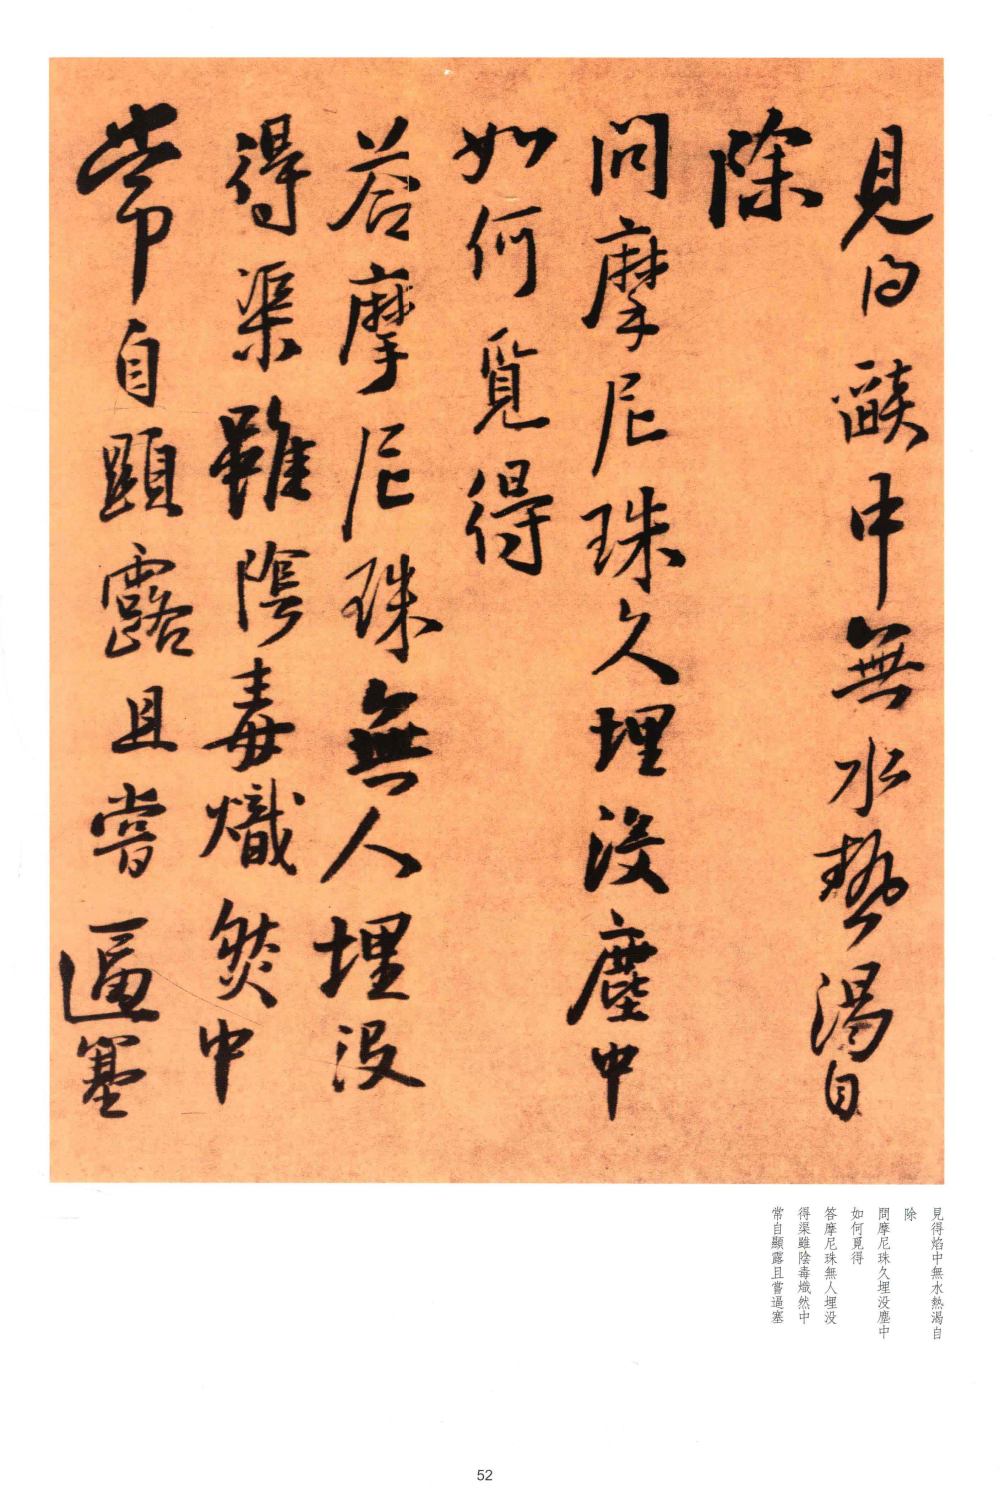 見得燄中無水熱渴自
除
問摩尼珠久埋没塵中
如何覓得
答摩尼珠無人埋没
得渠雖陰毒熾然中
常自顯露且嘗逼塞
見得焰中無水熱渴自
除
問摩尼珠久埋没塵中
如何覓得
答摩尼珠無人埋没
得渠雖陰毒熾然中
常自顯露且嘗逼塞
52